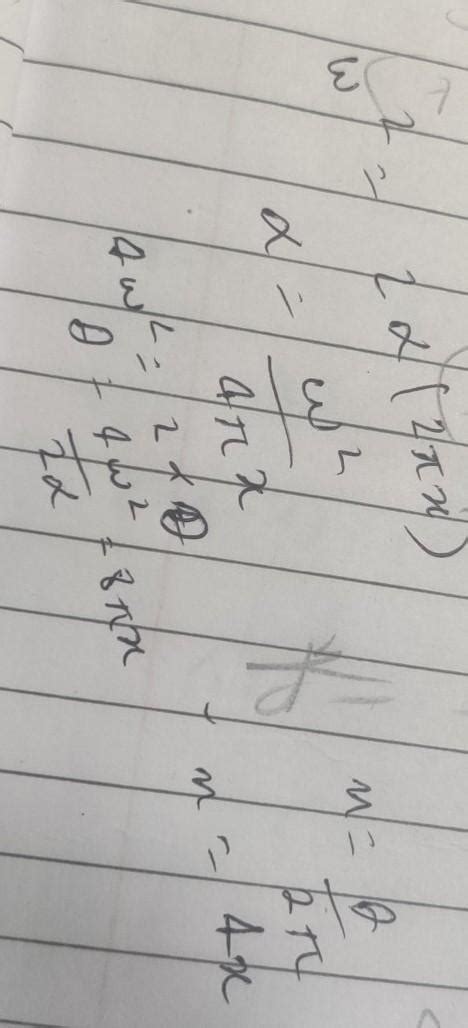 ω² = 2α(2πx)
α = ω² / 4πx
4ω² = 2αθ
θ = 4ω² / 2α = 8πx
n = θ / 2π
n = 4x